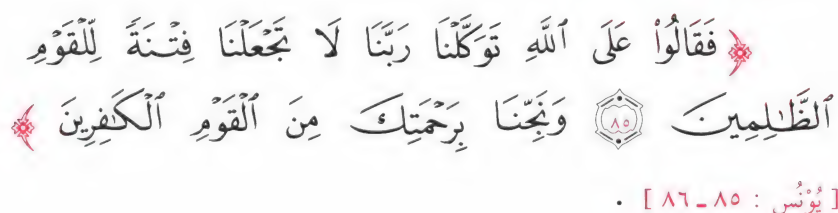 ﴿ فَقَالُوا۟ عَلَى ٱللَّهِ تَوَكَّلْنَا رَبَّنَا لَا تَجْعَلْنَا فِتْنَةً لِّلْقَوْمِ
ٱلظَّٰلِمِينَ ۝٨٥ وَنَجِّنَا بِرَحْمَتِكَ مِنَ ٱلْقَوْمِ ٱلْكَٰفِرِينَ ﴾
[ يُوْنُس : ٨٥ ـ ٨٦ ] .